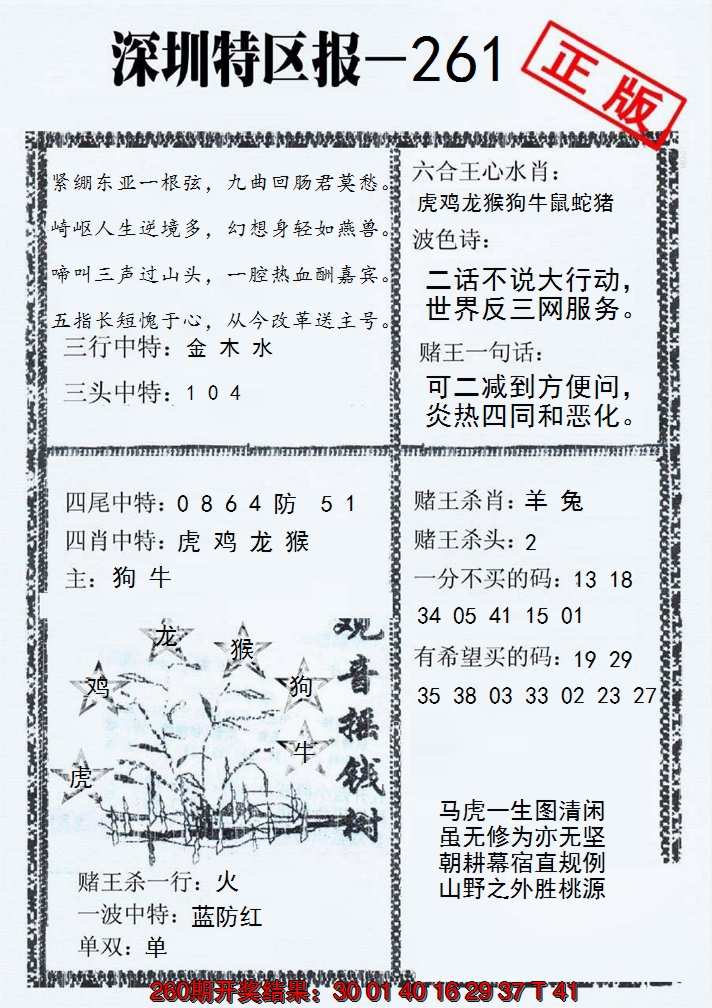 深圳特区报—261
正版
紧绷东亚一根弦，九曲回肠君莫愁。
崎岖人生逆境多，幻想身轻如燕兽。
啼叫三声过山头，一腔热血酬嘉宾。
五指长短愧于心，从今改革送主号。
三行中特：金 木 水
三头中特：1 0 4
六合王心水肖：
虎鸡龙猴狗牛鼠蛇猪
波色诗：
二话不说大行动，
世界反三网服务。
赌王一句话：
可二减到方便问，
炎热四同和恶化。
四尾中特：0 8 6 4 防 5 1
四肖中特：虎 鸡 龙 猴
主：狗 牛
龙
猴
鸡
狗
牛
虎
观音摇钱树
赌王杀一行：火
一波中特：蓝防红
单双：单
赌王杀肖：羊 兔
赌王杀头：2
一分不买的码：13 18
34 05 41 15 01
有希望买的码：19 29
35 38 03 33 02 23 27
马虎一生图清闲
虽无修为亦无坚
朝耕幕宿直规例
山野之外胜桃源
260期开奖结果：30 01 40 16 29 37 T 41